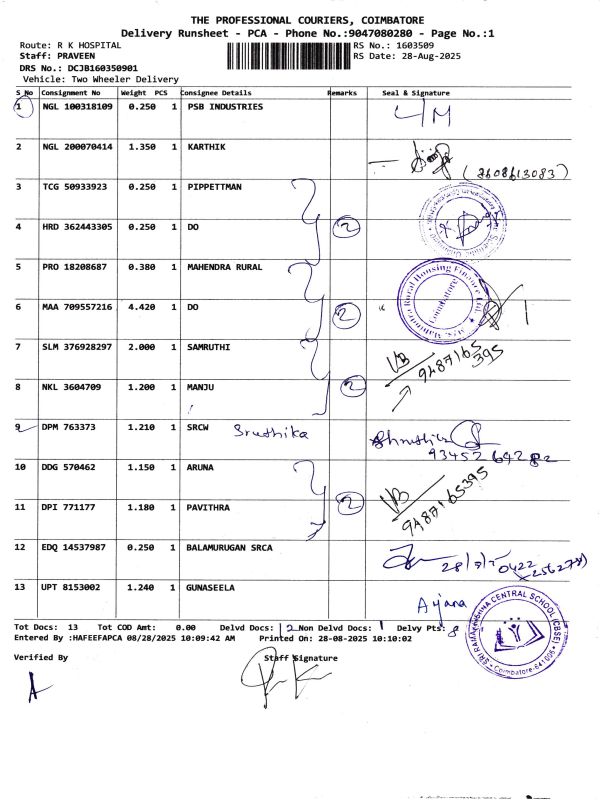 THE PROFESSIONAL COURIERS, COIMBATORE
Delivery Runsheet - PCA - Phone No.:9047080280 - Page No.:1
Route: R K HOSPITAL RS No.: 1603509
Staff: PRAVEEN RS Date: 28-Aug-2025
DRS No.: DCJB160350901
Vehicle: Two Wheeler Delivery
S No Consignment No Weight PCS Consignee Details Remarks Seal & Signature
1 NGL 100318109 0.250 1 PSB INDUSTRIES
2 NGL 200070414 1.350 1 KARTHIK
3 TCG 50933923 0.250 1 PIPPETTMAN
4 HRD 362443305 0.250 1 DO 2
5 PRO 18208687 0.380 1 MAHENDRA RURAL
6 MAA 709557216 4.420 1 DO 2
7 SLM 376928297 2.000 1 SAMRUTHI 9487165395
8 NKL 3604709 1.200 1 MANJU 2
9 DPM 763373 1.210 1 SRCW Sruthika
10 DDG 570462 1.150 1 ARUNA
11 DPI 771177 1.180 1 PAVITHRA 2 9487165395
12 EDQ 14537987 0.250 1 BALAMURUGAN SRCA
13 UPT 8153002 1.240 1 GUNASEELA
Tot Docs: 13 Tot COD Amt: 0.00 Delvd Docs: 12 Non Delvd Docs: 1 Delvy Pts: 8
Entered By :HAFEEFAPCA 08/28/2025 10:09:42 AM Printed On: 28-08-2025 10:10:02
Verified By Staff Signature